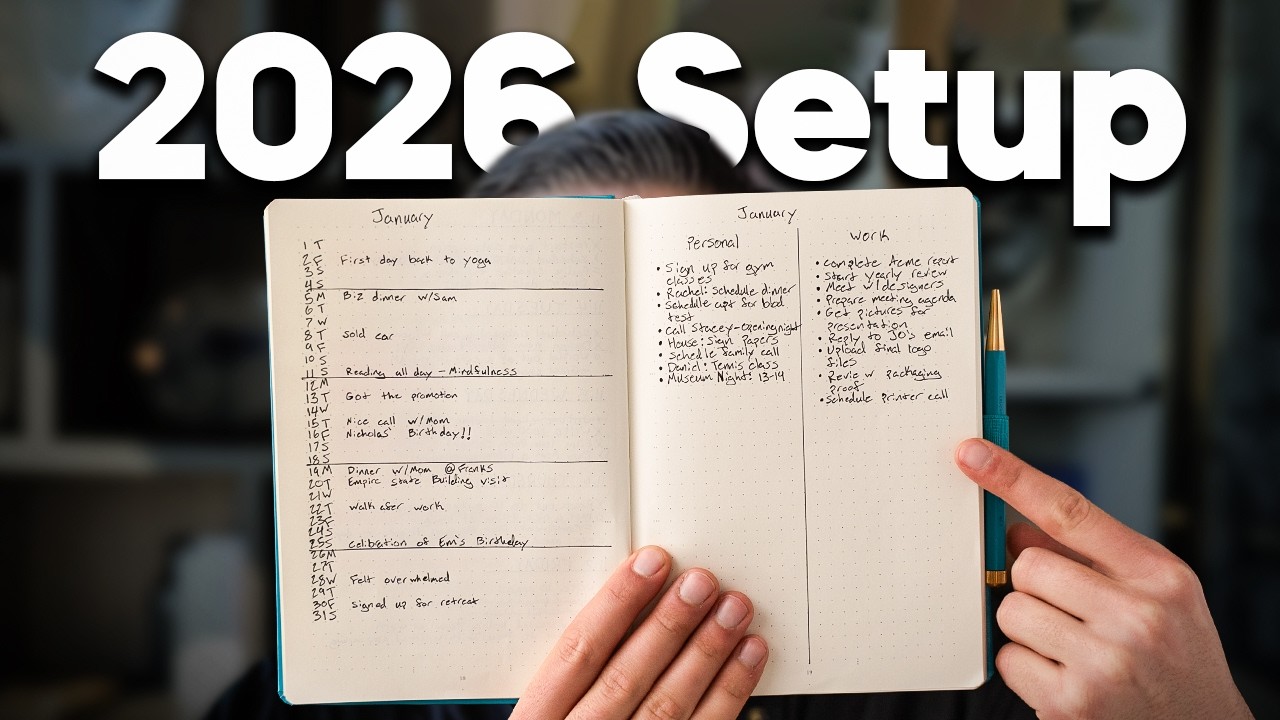 2026 Setup
January
1 T
2 F First day back to yoga
3 S
4 S
5 M Biz dinner w/Sam
6 T
7 W
8 T Sold car
9 F
10 S
11 S Reading all day - Mindfulness
12 M
13 T Got the promotion
14 W
15 T Nice call w/Mom
16 F Nicholas' Birthday!!
17 S
18 S
19 M Dinner w/Mom @Franks
20 T Empire state Building visit
21 W
22 T Walk after work
23 F
24 S
25 S Celibration of Em's Birthday
26 M
27 T
28 W Felt overwhelmed
29 T
30 F Signed up for retreat
31 S
January
Personal
• Sign up for gym
classes
• Rachel: Schedule dinner
• Schedule apt for blod
test
• Call Stacey-opening night
• House: Sign Papers
• Schedle family call
• Daniel: Tennis class
• Museum Night: 13-14
Work
• Complete Acme report
• Start yearly review
• Meet w/designers
• Prepare meeting agenda
• Get pictures for
presentation
• Reply to JO's email
• Upload final logo
files
• Review packaging
proof
• Schedule printer call